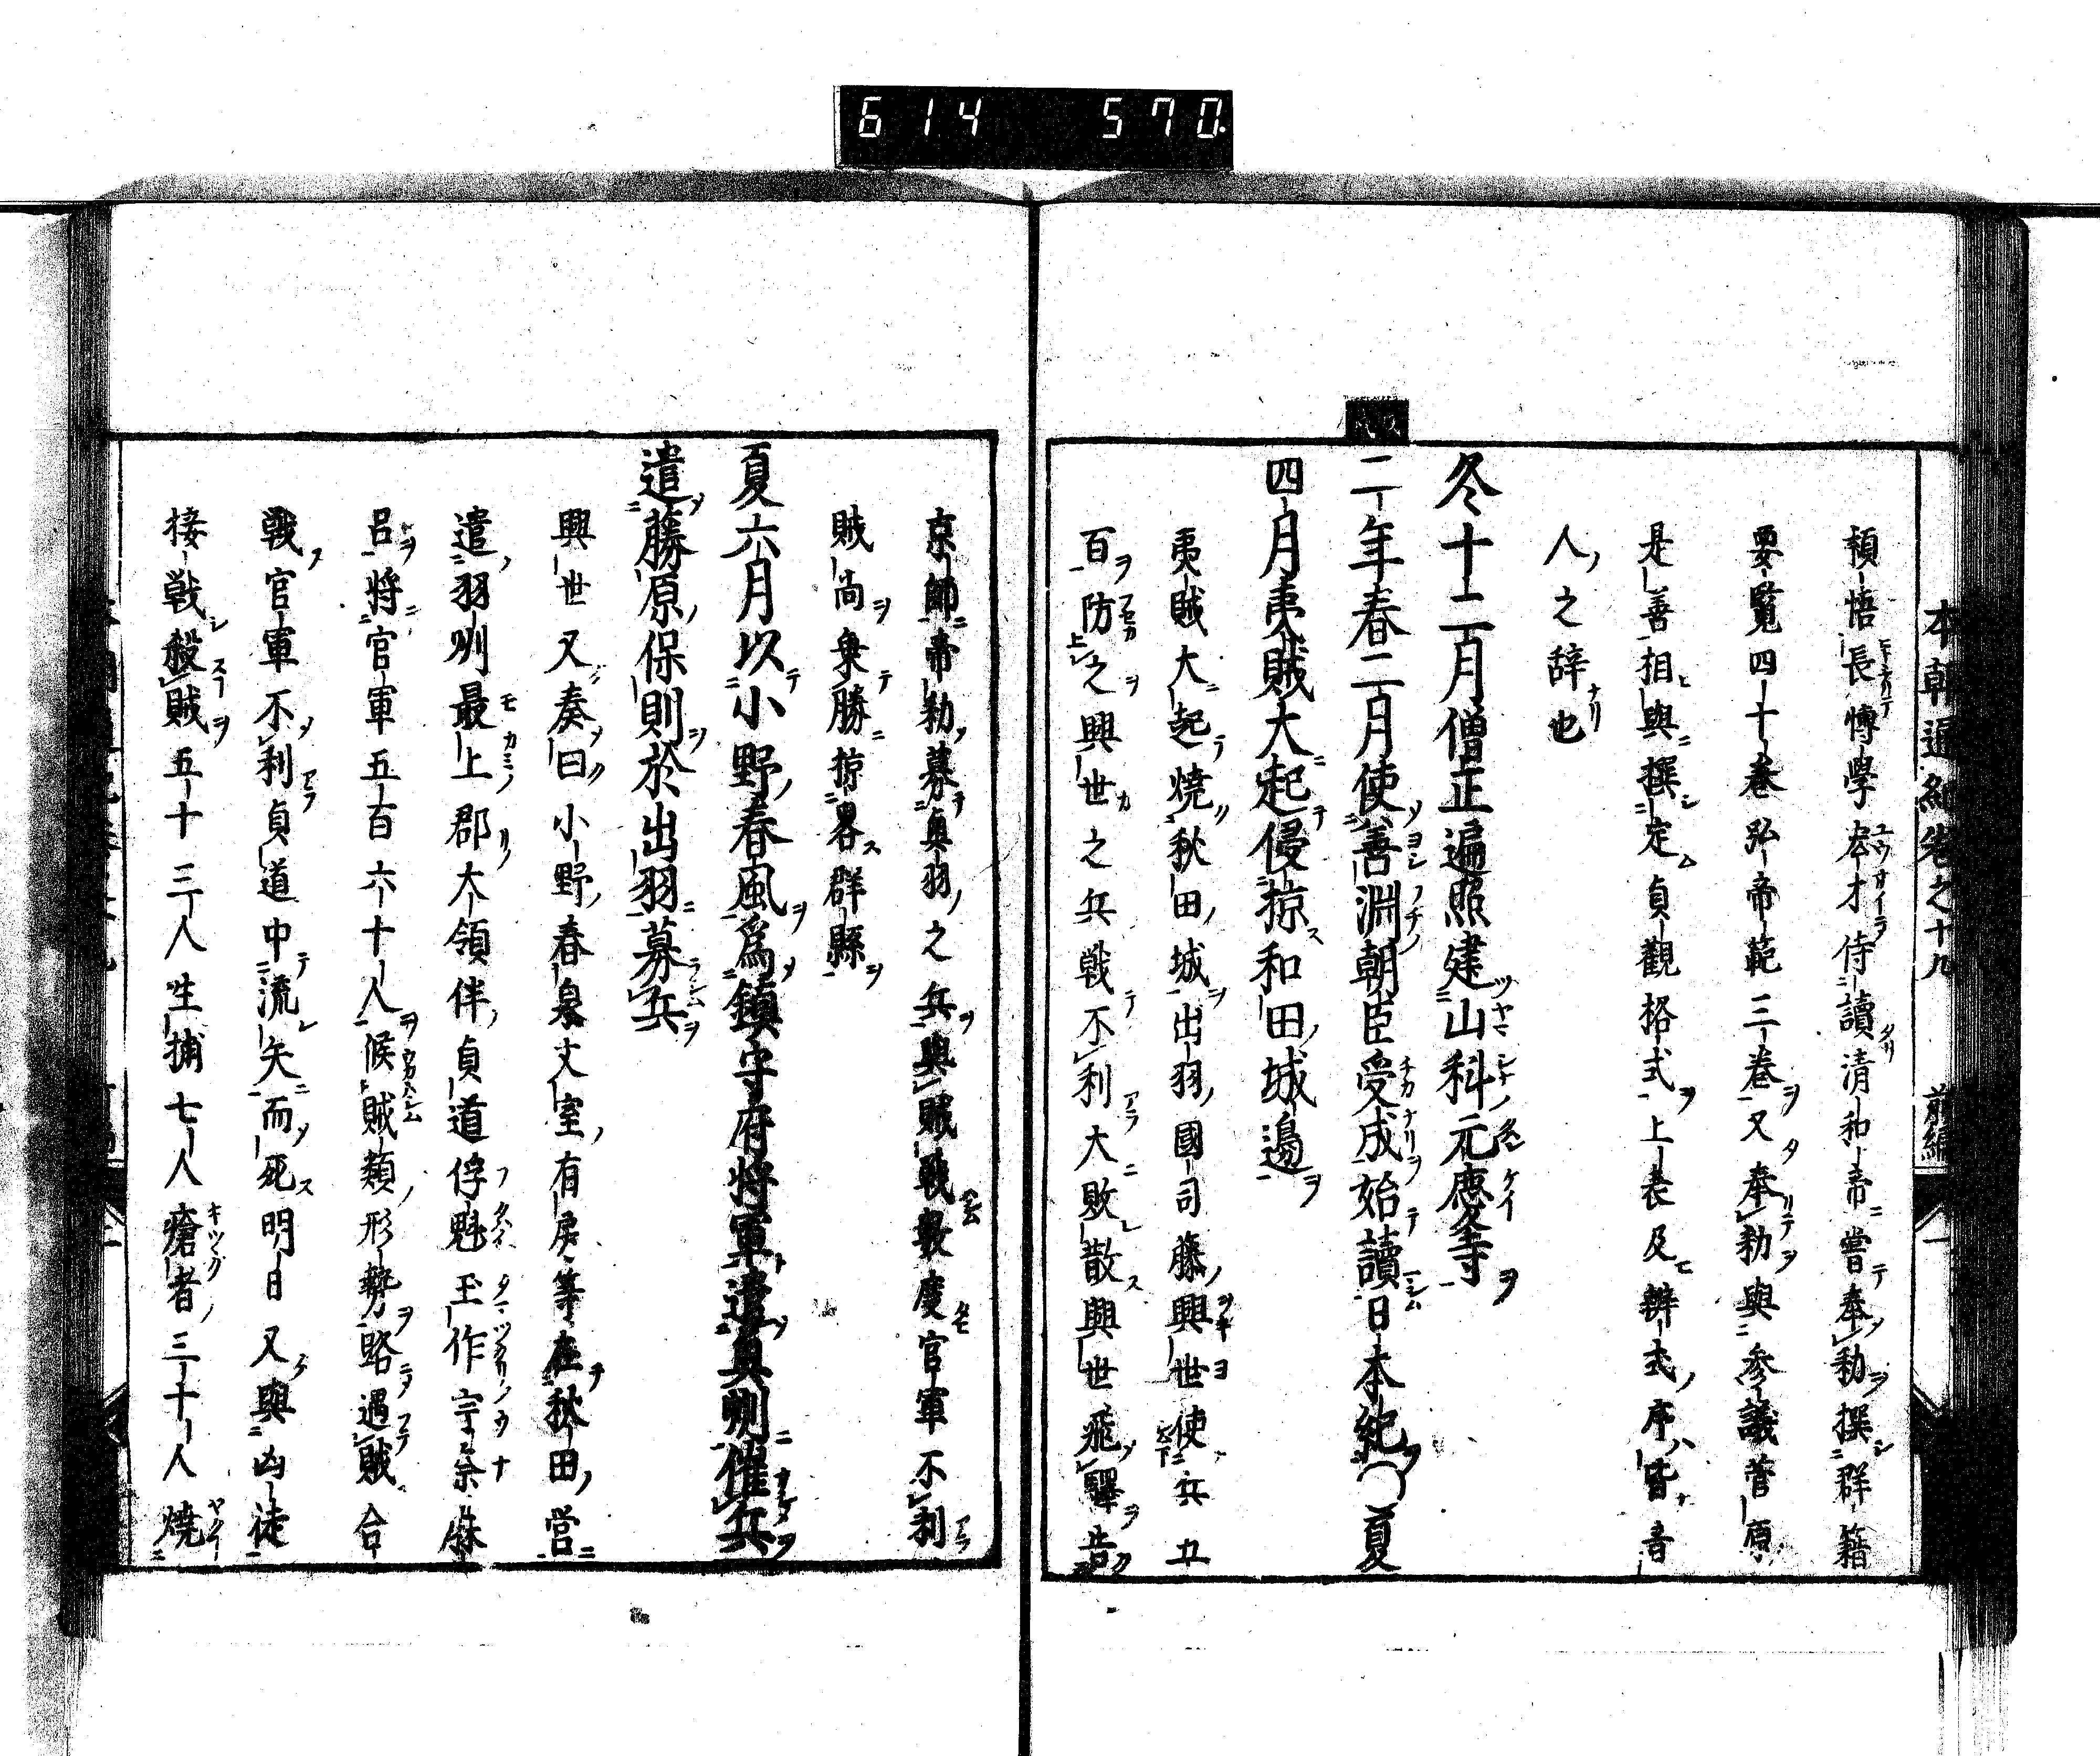 614 570
本朝通紀卷之十九 前編 一
穎悟長博學宏才侍讀清和帝嘗奉勅撰群籍
要覽四十卷弘帝範三卷又奉勅與參議菅原
是善相與撰定貞觀格式上表及辨式序皆音
人之辞也
冬十二月僧正遍照建山科元慶寺
二年春二月使善淵朝臣受成始讀日本紀〇夏
四月夷賊大起侵掠和田城邊
夷賊大起燒秋田城出羽國司藤興世使兵五
百防之興世之兵戦不利大敗散興世飛驛告
京師帝勅募奥羽之兵與賊戦數度官軍不利
賊尚乗勝掠畧群縣
夏六月以小野春風爲鎮守府将軍遣奥州催兵
遣藤原保則於出羽募兵
興世又奏曰小野春泉文室有房等在秋田営
遣羽州最上郡大領伴貞道俘魁玉作宇奈麻
呂将官軍五百六十人候賊類形勢路遇賊合
戦官軍不利貞道中流矢而死明日又與凶徒
接戦殺賊五十三人生捕七人瘡者三十人燒